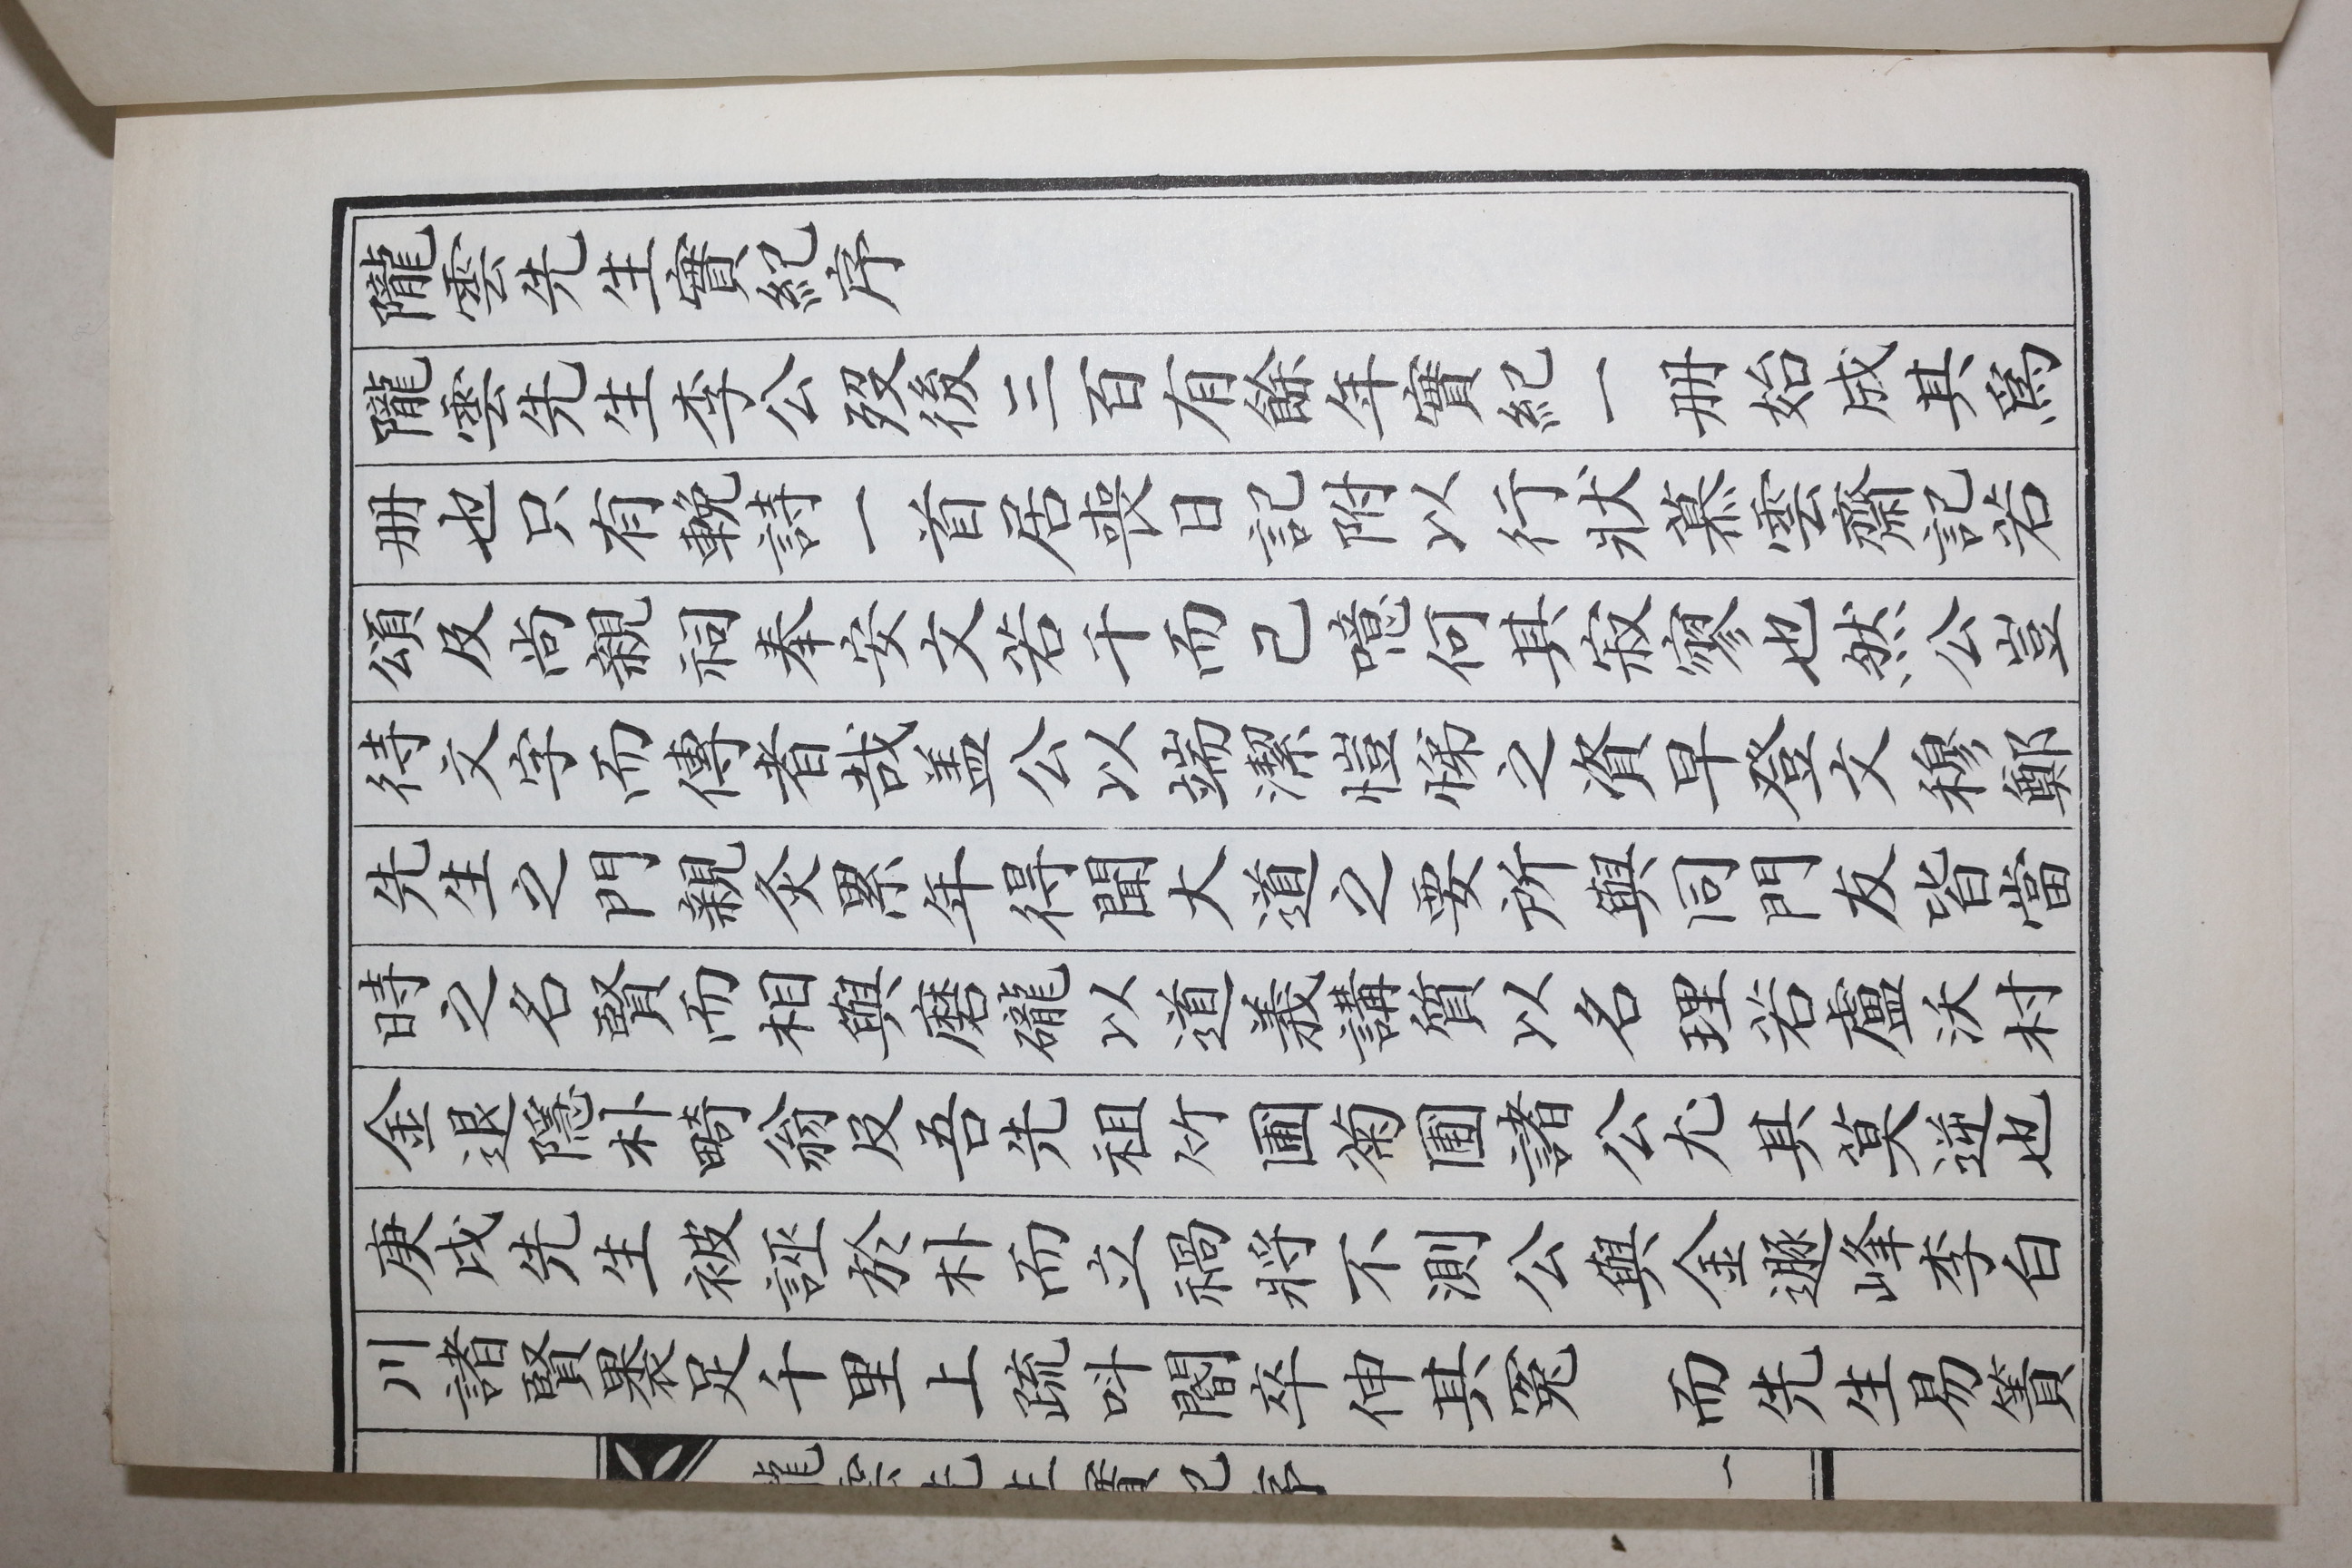 隴雲先生實紀序
隴雲先生李公歿後三百有餘年實紀一册始成其爲
册也只有輓詩一首居喪日記附以行狀慕雲齋記若
頌及尚親祠奉安文若干而已噫何其寂寥也然公豈
待文字而傳者哉盖公以端潔愷悌之資早登文穆鄭
先生之門親灸累年得聞大道之要所與同門友皆當
時之名賢而相與磨礲以道義講質以名理若盧沃村
金退隱朴畸翁及吾先祖竹圃菊圃諸公尤其莫逆也
庚戌先生被誣於朴而立禍將不測公與金遯峰李白
川諸賢褁足千里上疏呌閽卒伸其冤　而先生易簀
隴雲先生實紀序
一